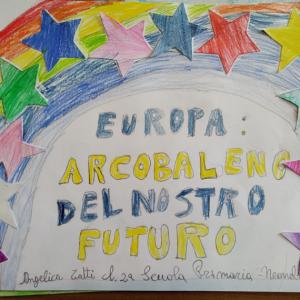 EUROPA:
ARCOBALENO
DEL NOSTRO
FUTURO
Angelica Zatti cl. 2a Scuola Primaria